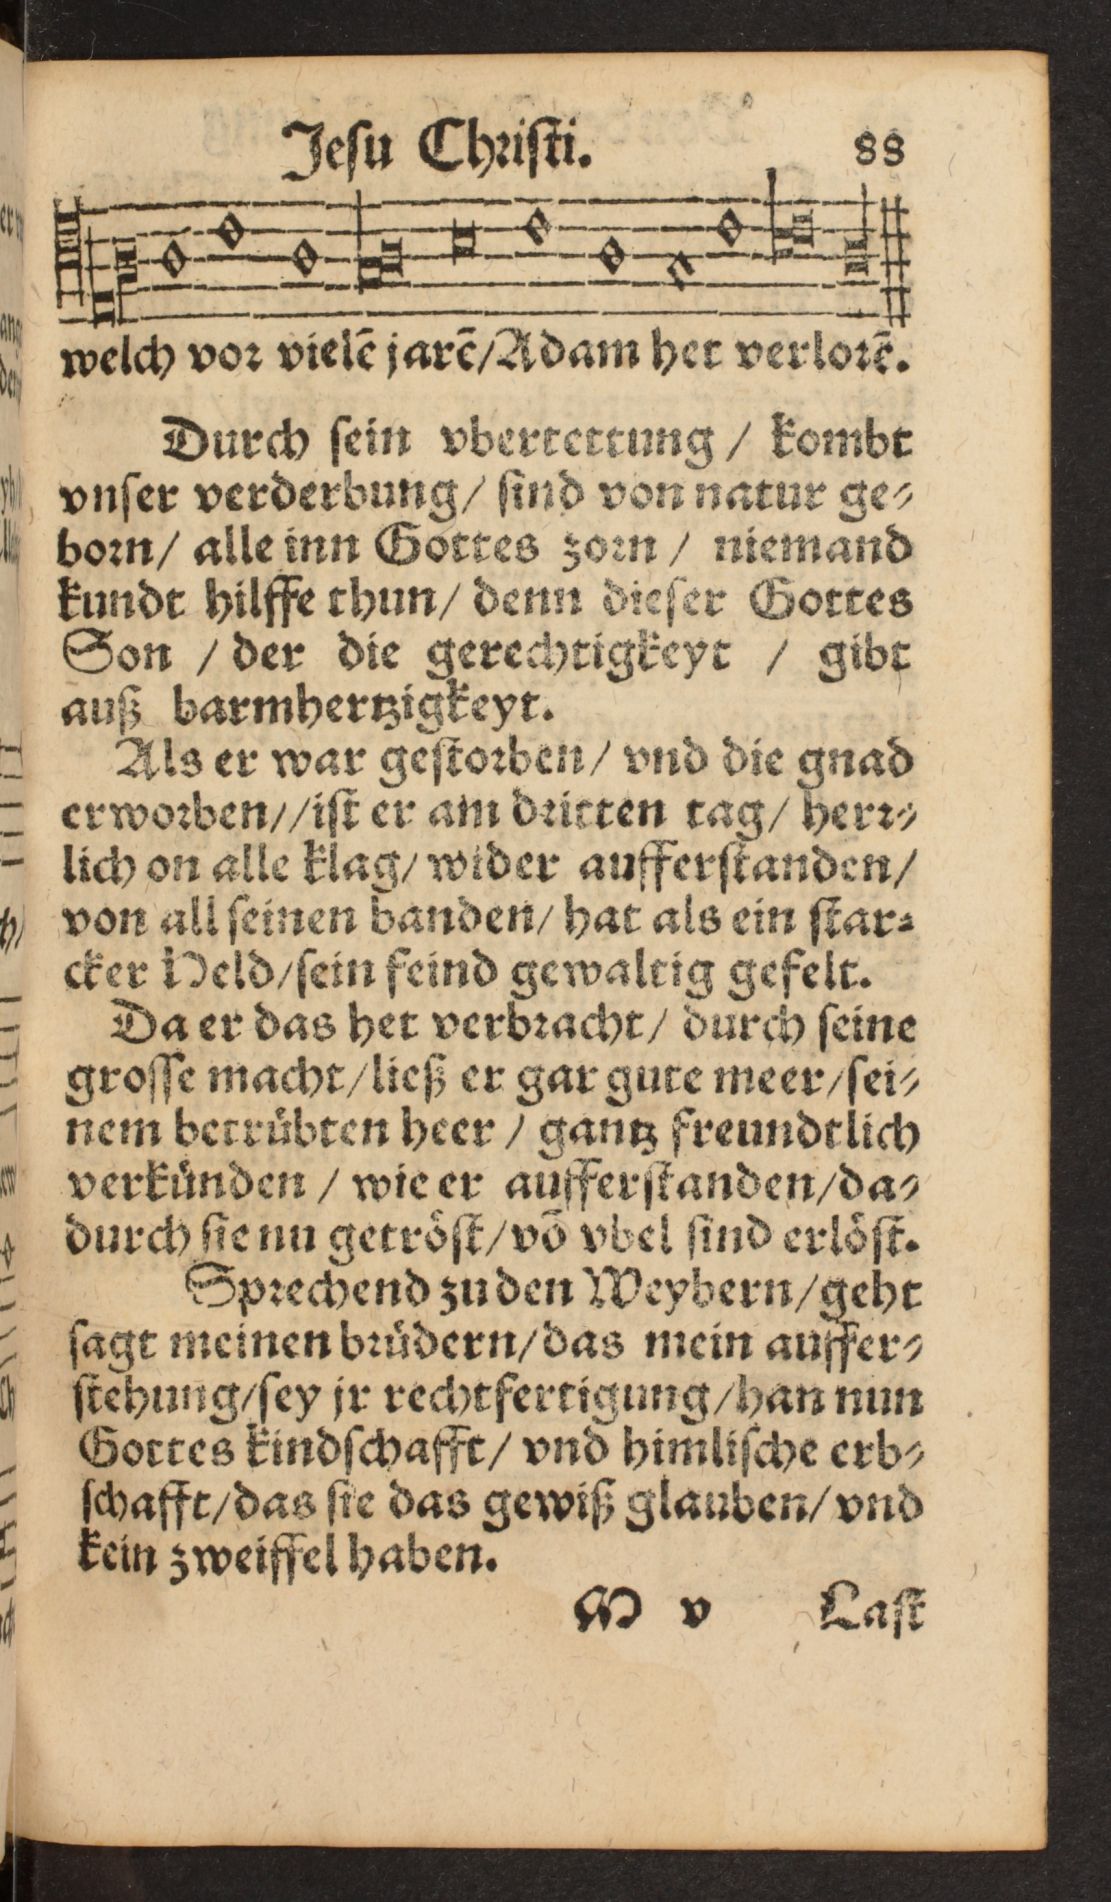 Jesu Christi. 88
welch vor vielē jarē/Adam het verlorē.
Durch sein vbertrettung / kombt
vnser verderbung/ sind von natur ge⸗
born/ alle inn Gottes zorn / niemand
kundt hilffe thun/ denn dieser Gottes
Son / der die gerechtigkeyt / gibt
auß barmhertzigkeyt.
Als er war gestorben/ vnd die gnad
erworben//ist er am dritten tag/ herr⸗
lich on alle klag/ wider aufferstanden/
von all seinen banden/ hat als ein star⸗
cker Held/sein feind gewaltig gefelt.
Da er das het verbracht/ durch seine
grosse macht/ließ er gar gute meer/sei⸗
nem betrübten heer / gantz freundtlich
verkünden / wie er aufferstanden/da⸗
durch sie nu getröst/vō vbel sind erlöst.
Sprechend zu den Weybern/geht
sagt meinen brüdern/das mein auffer⸗
stehung/sey jr rechtfertigung/han nun
Gottes kindschafft/ vnd himlische erb⸗
schafft/das sie das gewiß glauben/ vnd
kein zweiffel haben.
M v Last